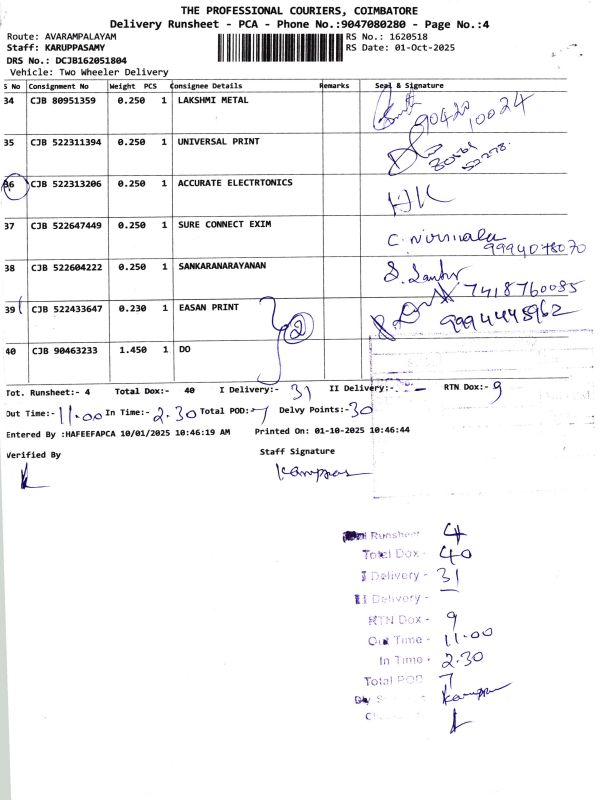 THE PROFESSIONAL COURIERS, COIMBATORE
Delivery Runsheet - PCA - Phone No.:9047080280 - Page No.:4
Route: AVARAMPALAYAM
RS No.: 1620518
Staff: KARUPPASAMY
RS Date: 01-Oct-2025
DRS No.: DCJB162051804
Vehicle: Two Wheeler Delivery
S No Consignment No Weight PCS Consignee Details Remarks Seal & Signature
34 CJB 80951359 0.250 1 LAKSHMI METAL
90420 10024
35 CJB 522311394 0.250 1 UNIVERSAL PRINT
36 CJB 522313206 0.250 1 ACCURATE ELECTRTONICS
37 CJB 522647449 0.250 1 SURE CONNECT EXIM C. Nirmala
9994078070
38 CJB 522604222 0.250 1 SANKARANARAYANAN
7418760085
39 CJB 522433647 0.230 1 EASAN PRINT 2 9994448962
40 CJB 90463233 1.450 1 DO
Tot. Runsheet:- 4 Total Dox:- 40 I Delivery:- 31 II Delivery:- - RTN Dox:- 9
Out Time:- 11.00 In Time:- 2.30 Total POD:- 7 Delvy Points:- 30
Entered By :HAFEEFAPCA 10/01/2025 10:46:19 AM Printed On: 01-10-2025 10:46:44
Verified By
Staff Signature
Runsheet 4
Total Dox - 40
I Delivery - 31
II Delivery - -
RTN Dox - 9
Out Time - 11.00
In Time - 2.30
Total POD 7